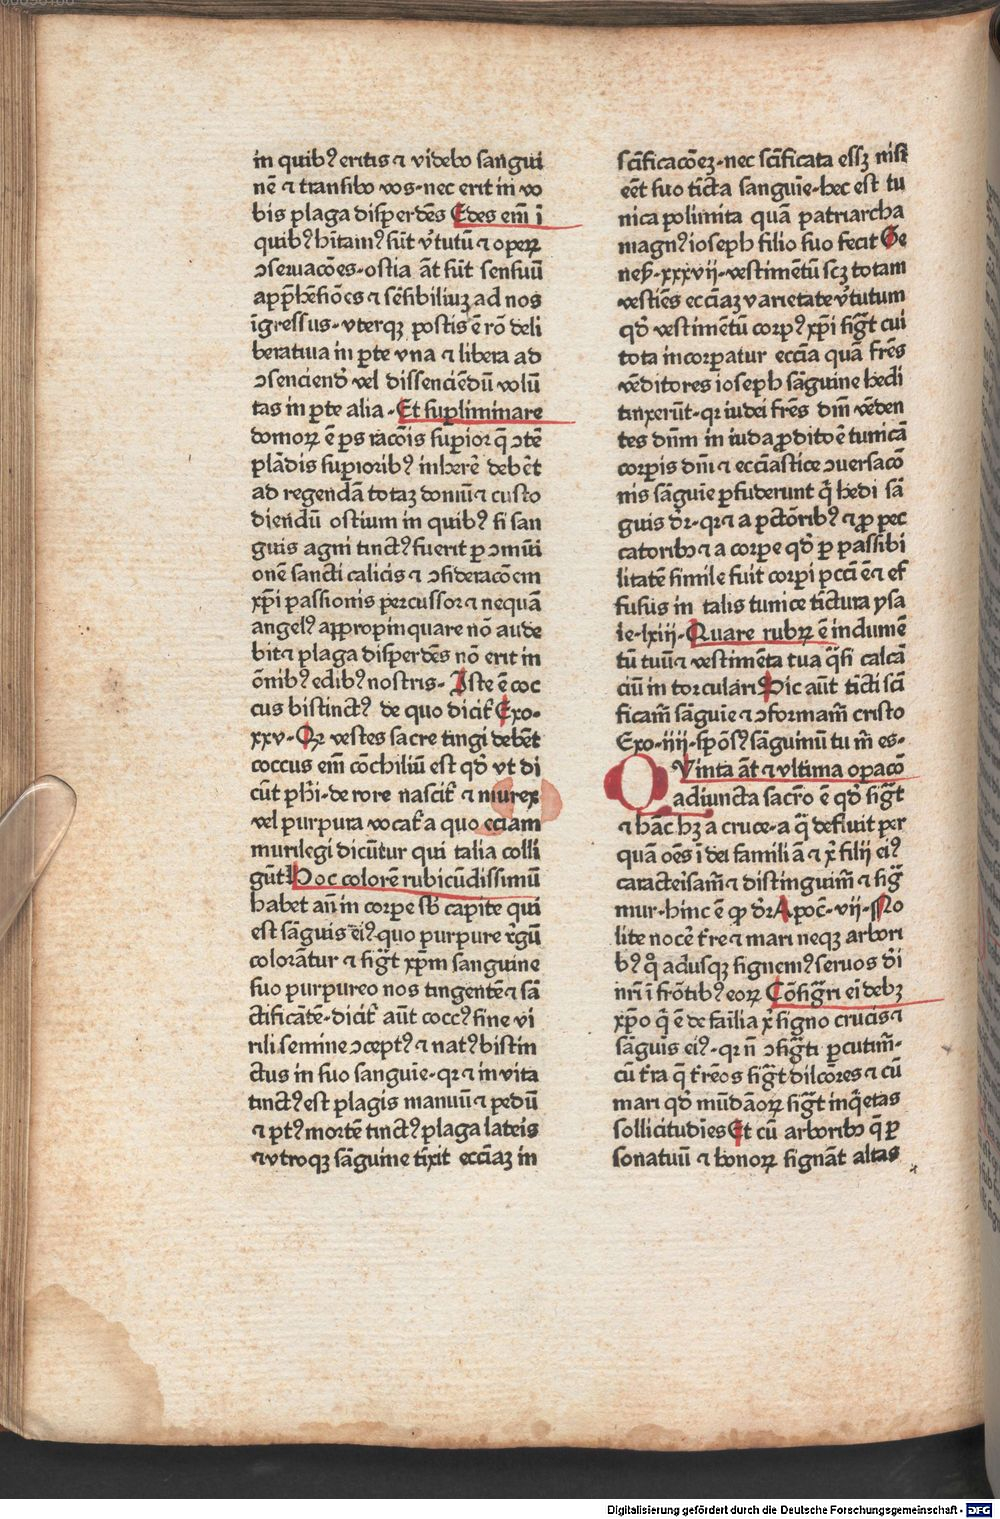 in quibꝰ eritis ⁊ videbo sangui
nē ⁊ transibo vos·nec erit in vo
bis plaga disꝑdēs Edes em̄ ī
quibꝰ hītamꝰ sūt v̄tutū ⁊ operꝝ
ↄseruacōes·ostia āt sūt sensuū
apꝑhēsiōes ⁊ sēsibiliuꝫ ad nos
īgressus·vterqꝫ postis ē rō deli
beratiua in ꝑte vna ⁊ libera ad
ↄsenciendꝰ vel dissenciēdū volū
tas in ꝑte alia·Et suꝑliminare
domoꝝ ē ps racōis suꝑior q̄ ↄtē
plādis suꝑioribꝰ inherē debēt
ad regendā totaꝫ domū ⁊ custo
diendū ostium in quibꝰ si san
guis agni tinctꝰ fuerit ꝑ ↄmūi
onē sancti calicis ⁊ ↄsideracōem
xp̄i passionis percussor ⁊ nequā
angelꝰ appropinquare nō aude
bit ⁊ plaga disꝑdēs nō erit in
ōnibꝰ edibꝰ nostris· Iste ē coc
cus bistinctꝰ de quo dicit̄ Exo·
xxv·Qꝛ vestes sacre tingi debēt
coccus em̄ cōchiliū est qd̄ vt di
cūt ph̄i·de rore nascit̄ ⁊ murex
vel purpura vocat̄ a quo eciam
murilegi dicūtur qui talia colli
gūt Hoc colorē rubicūdissimū
habet an̄ in corpe sb̄ capite qui
est sāguis eiꝰ·quo purpure r̄gū
colorātur ⁊ figt̄ xp̄m sanguine
suo purpureo nos tingentē ⁊ sā
ctificātē·dicit̄ aūt coccꝰ sine vi
rili semine ↄceptꝰ ⁊ natꝰ bistin
ctus in suo sanguie·qꝛ ⁊ in vita
tinctꝰ est plagis manuū ⁊ pedū
⁊ ꝑtꝰ mortē tinctꝰ plaga lateīs
⁊ vtroqꝫ sāguine tīxit eccīaꝫ in
scīficacōeꝫ·nec scīficata essꝫ nisi
eēt suo tīcta sanguīe·hec est tu
nica polimita quā patriarcha
magnꝰ ioseph filio suo fecit Ge
nes̄·xxxvii·vestimētū scꝫ totam
vestiēs eccīaꝫ varietate v̄tutum
qd̄ vestimētū corpꝰ xp̄i figt̄ cui
tota incorꝑatur eccīa quā fr̄es
vēditores ioseph sāguine hedi
tinxerūt·qꝛ iudei fr̄es dn̄i vēden
tes dn̄m in iuda ꝓditoē tunicā
corpis dn̄i ⁊ eccīastice ↄuersacō
nis sāguīe ꝑfuderunt q̄ hedi sā
guis dꝛ̄·qꝛ ⁊ a pctōribꝰ ⁊ ꝓ pec
catoribꝰ ⁊ a corpe qd̄ ꝑ passibi
litatē simile fuit corpi pccī ē ⁊ ef
fusus in talis tunice tīctura ysa
ie·lxiij·Quare rubꝝ ē indumē
tū tuū ⁊ vestimēta tua q̄si calcā
ciū in torculari Hic aūt tīcti scī
ficam̄ sāguīe ⁊ ↄformam̄ cristo
Exo·iiij·sp̄ōsꝰ sāguinū tu m̄ es·
QVinta āt ⁊ vltima oꝑacō
adiuncta sacrō ē qd̄ figt̄
⁊ hāc hꝫ a cruce·a q̄ defluit per
quā oēs ī dei familiā ⁊ xp̄i filij eiꝰ
caractēisam̄ ⁊ distinguim̄ ⁊ fiḡ
mur·hinc ē ꝙ dꝛ̄ Apoc̄·vij·No
lite nocē tr̄e ⁊ mari neqꝫ arbori
bꝰ q̄ adusqꝫ signemꝰ seruos dī
nrī ī frōtibꝰ eoꝝ Cōfigr̄i eī debꝫ
xp̄o q̄ ē de faīlia xp̄i signo crucis ⁊
sāguis eiꝰ·qꝛ n̄ ↄfigt̄i ꝑcutim̄·
cū tr̄a q̄ tr̄eos figt̄ dilcōres ⁊ cū
mari qd̄ mūdāoꝝ figt̄ inq̄etas
sollicitudīes Et cū arboribꝰ q̄ ꝑ
sonatuū ⁊ honoꝝ signāt altas
Digitalisierung gefördert durch die Deutsche Forschungsgemeinschaft - DFG